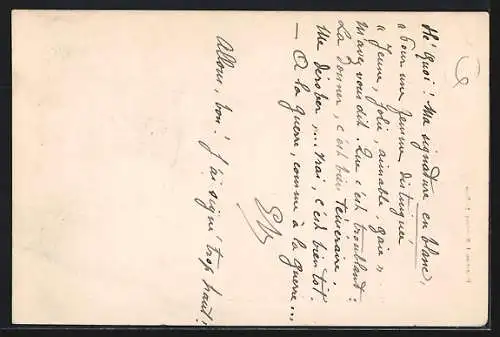 Hé' quoi! Ma signature en blanc,
" Pour une femme distinguée
" Jeune, jolie, aimable, gaie "..
M'avez vous dit. Que c'est troublant:
La donner, c'est bien téméraire!
Me dérober ... vrai, c'est bientôt.
— A la guerre, comme à la guerre...,
Allons, bon! J'ai signé trop haut!